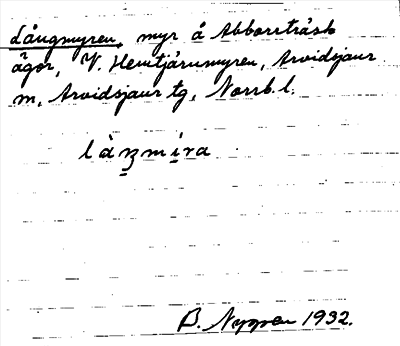 Långmyren, myr å Abborrträsk
ägor, V. Hemtjärnmyren, Arvidsjaur
m, Arvidsjaur tg, Norrb. l.
làŋmi̱ra
1932.